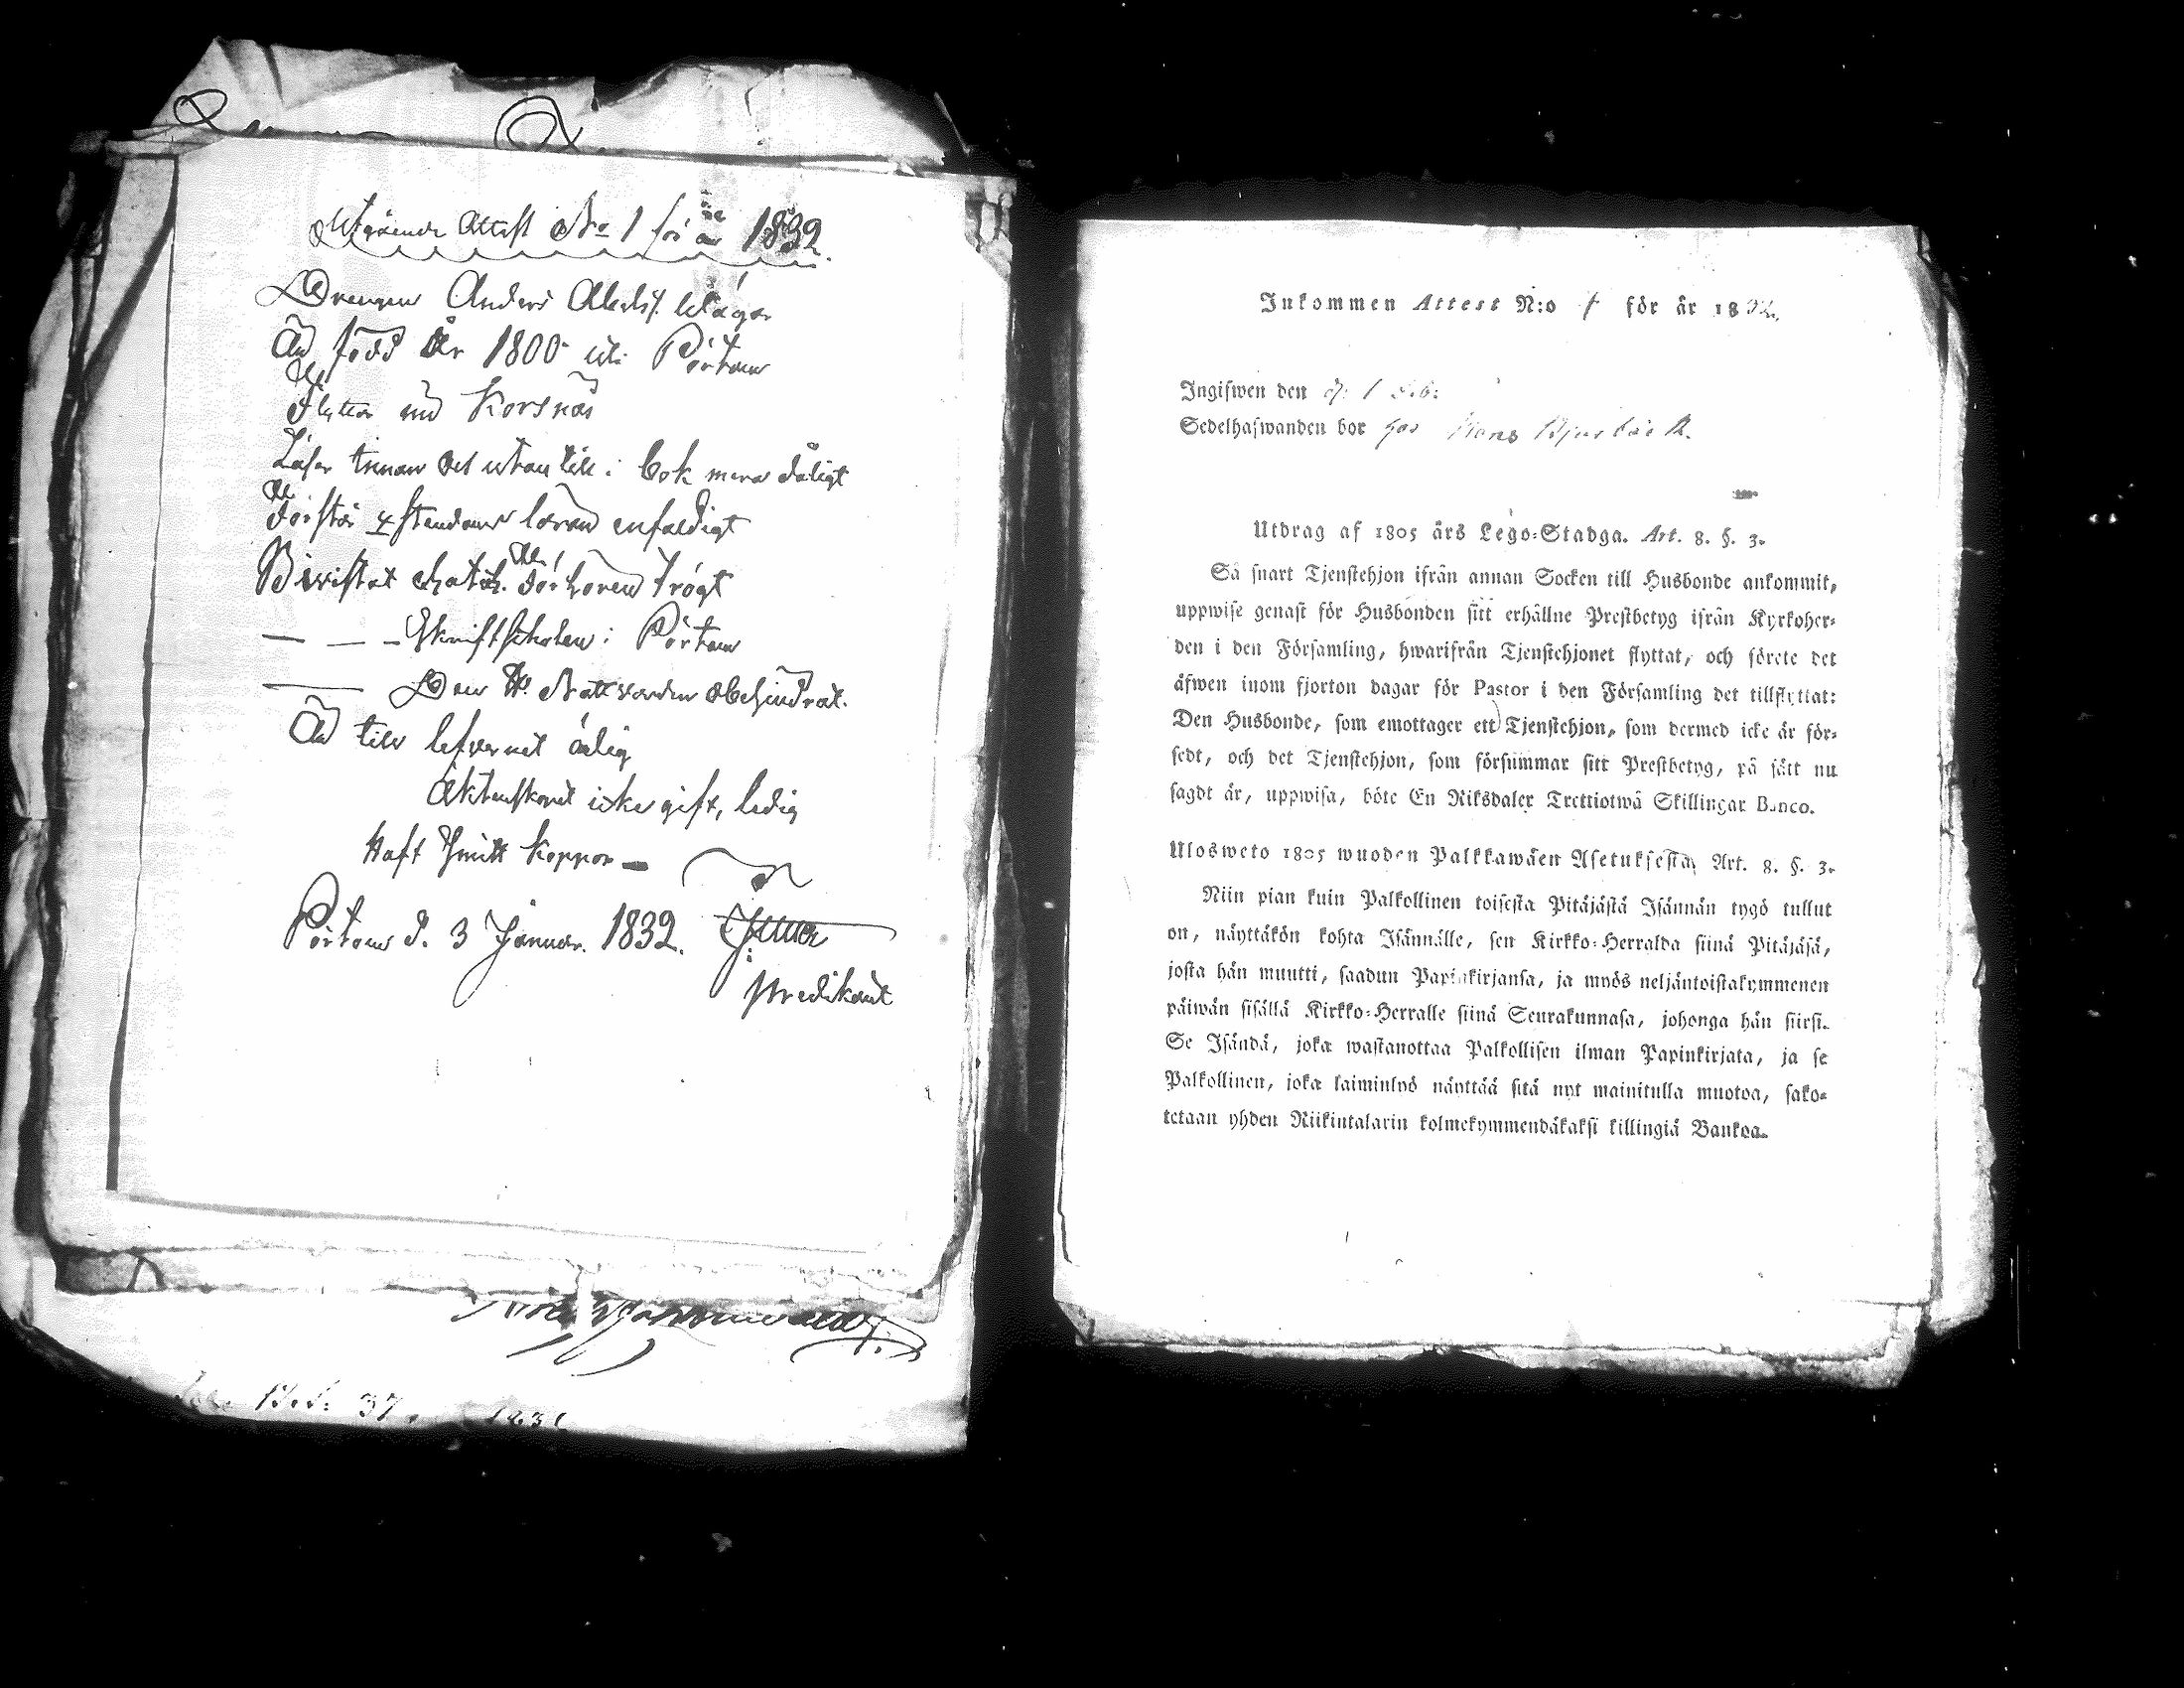 Utgående Attest No 1 för år 1832.
Drengen Anders
Är född År 1800 uti Pörtom
Flyttar till Korsnäs
Läser innan och utan till i bok mera dåligt
Förstår Christendoms läran enfaldigt
Bivistat Förhören trögt
— — — Skriftskolan i Pörtom
— Den H. Nattvarden obehindrat.
Är till lefvernet ärlig
Äktenskapet icke gift, ledig
Haft Smitt Koppor —
Pörtom d. 3 Januar. 1832.
Predikant
Inkommen Attest N:o för år 1832.
Ingifwen den 1 Feb:
Sedelhafwanden bor hos
Utdrag af 1805 års Lego-Stadga. Art. 8. §. 3.
Så snart Tjenstehjon ifrån annan Socken till Husbonde ankommit,
uppwise genast för Husbonden sitt erhållne Prestbetyg ifrån Kyrkoher-
den i den Församling, hwarifrån Tjenstehjonet flyttat, och förete det
äfwen inom fjorton dagar för Pastor i den Församling det tillflyttat:
Den Husbonde, som emottager ett Tjenstehjon, som dermed icke är för-
sedt, och det Tjenstehjon, som försummar sitt Prestbetyg, på sätt nu
sagdt är, uppwisa, böte En Riksdaler Trettiotwå Skillingar Banco.
Ulosweto 1805 wuoden Palkkawäen Asetuksesta, Art. 8. §. 3.
Niin pian kuin Palkollinen toisesta Pitäjästä Isännän tygö tullut
on, näyttäkön kohta Isännälle, sen Kirkko-Herralda siinä Pitäjäsä,
josta hän muutti, saadun Papinkirjansa, ja myös neljäntoistakymmenen
päiwän sisällä Kirkko-Herralle siinä Seurakunnasa, johonga hän siirsi.
Se Isändä, joka wastanottaa Palkollisen ilman Papinkirjata, ja se
Palkollinen, joka laiminlyö näyttää sitä nyt mainitulla muotoa, sako-
tetaan yhden Riikintalarin kolmekymmendäkaksi killingiä Bankoa.